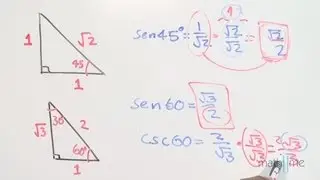 1 √2 45 1
sen45° = 1/√2 = √2/√2 = √2/2
√3 30 2 60° 1
sen60 = √3/2
csc60 = 2/√3 · √3/√3 = 2√3/3